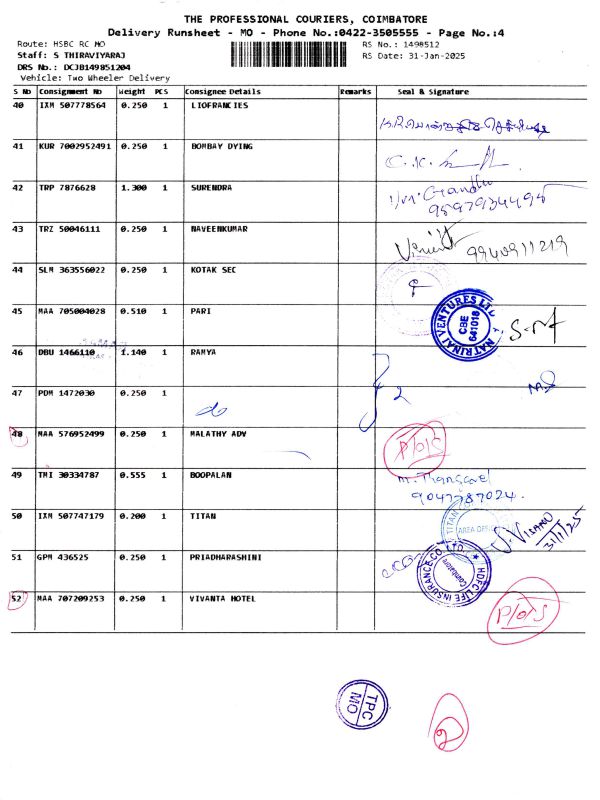 THE PROFESSIONAL COURIERS, COIMBATORE
Delivery Runsheet - MO - Phone No.:0422-3505555 - Page No.:4
Route: HSBC RC MO
RS No.: 1498512
Staff: S THIRAVIYARAJ
RS Date: 31-Jan-2025
DRS No.: DCJB149851204
Vehicle: Two Wheeler Delivery
S No Consignment No Weight PCS Consignee Details Remarks Seal & Signature
40 IXM 507778564 0.250 1 LIOFRANCIES
41 KUR 7002952491 0.250 1 BOMBAY DYING
42 TRP 7876628 1.300 1 SURENDRA
9597934495
43 TRZ 50046111 0.250 1 NAVEENKUMAR
9940911219
44 SLM 363556022 0.250 1 KOTAK SEC
45 MAA 705004028 0.510 1 PARI
NATRINAI VENTURES
CBE
641018
46 DBU 1466110 1.140 1 RAMYA
47 PDM 1472030 0.250 1
48 MAA 576952499 0.250 1 MALATHY ADV
49 TMI 30334787 0.555 1 BOOPALAN
M. Thangavel
9047787024.
50 IXM 507747179 0.200 1 TITAN
TITAN
AREA OFFICE
31/1/25
51 GPM 436525 0.250 1 PRIADHARASHINI
HDFC LIFE INSURANCE CO. LTD.
Coimbatore
52 MAA 707209253 0.250 1 VIVANTA HOTEL
TPC
MO